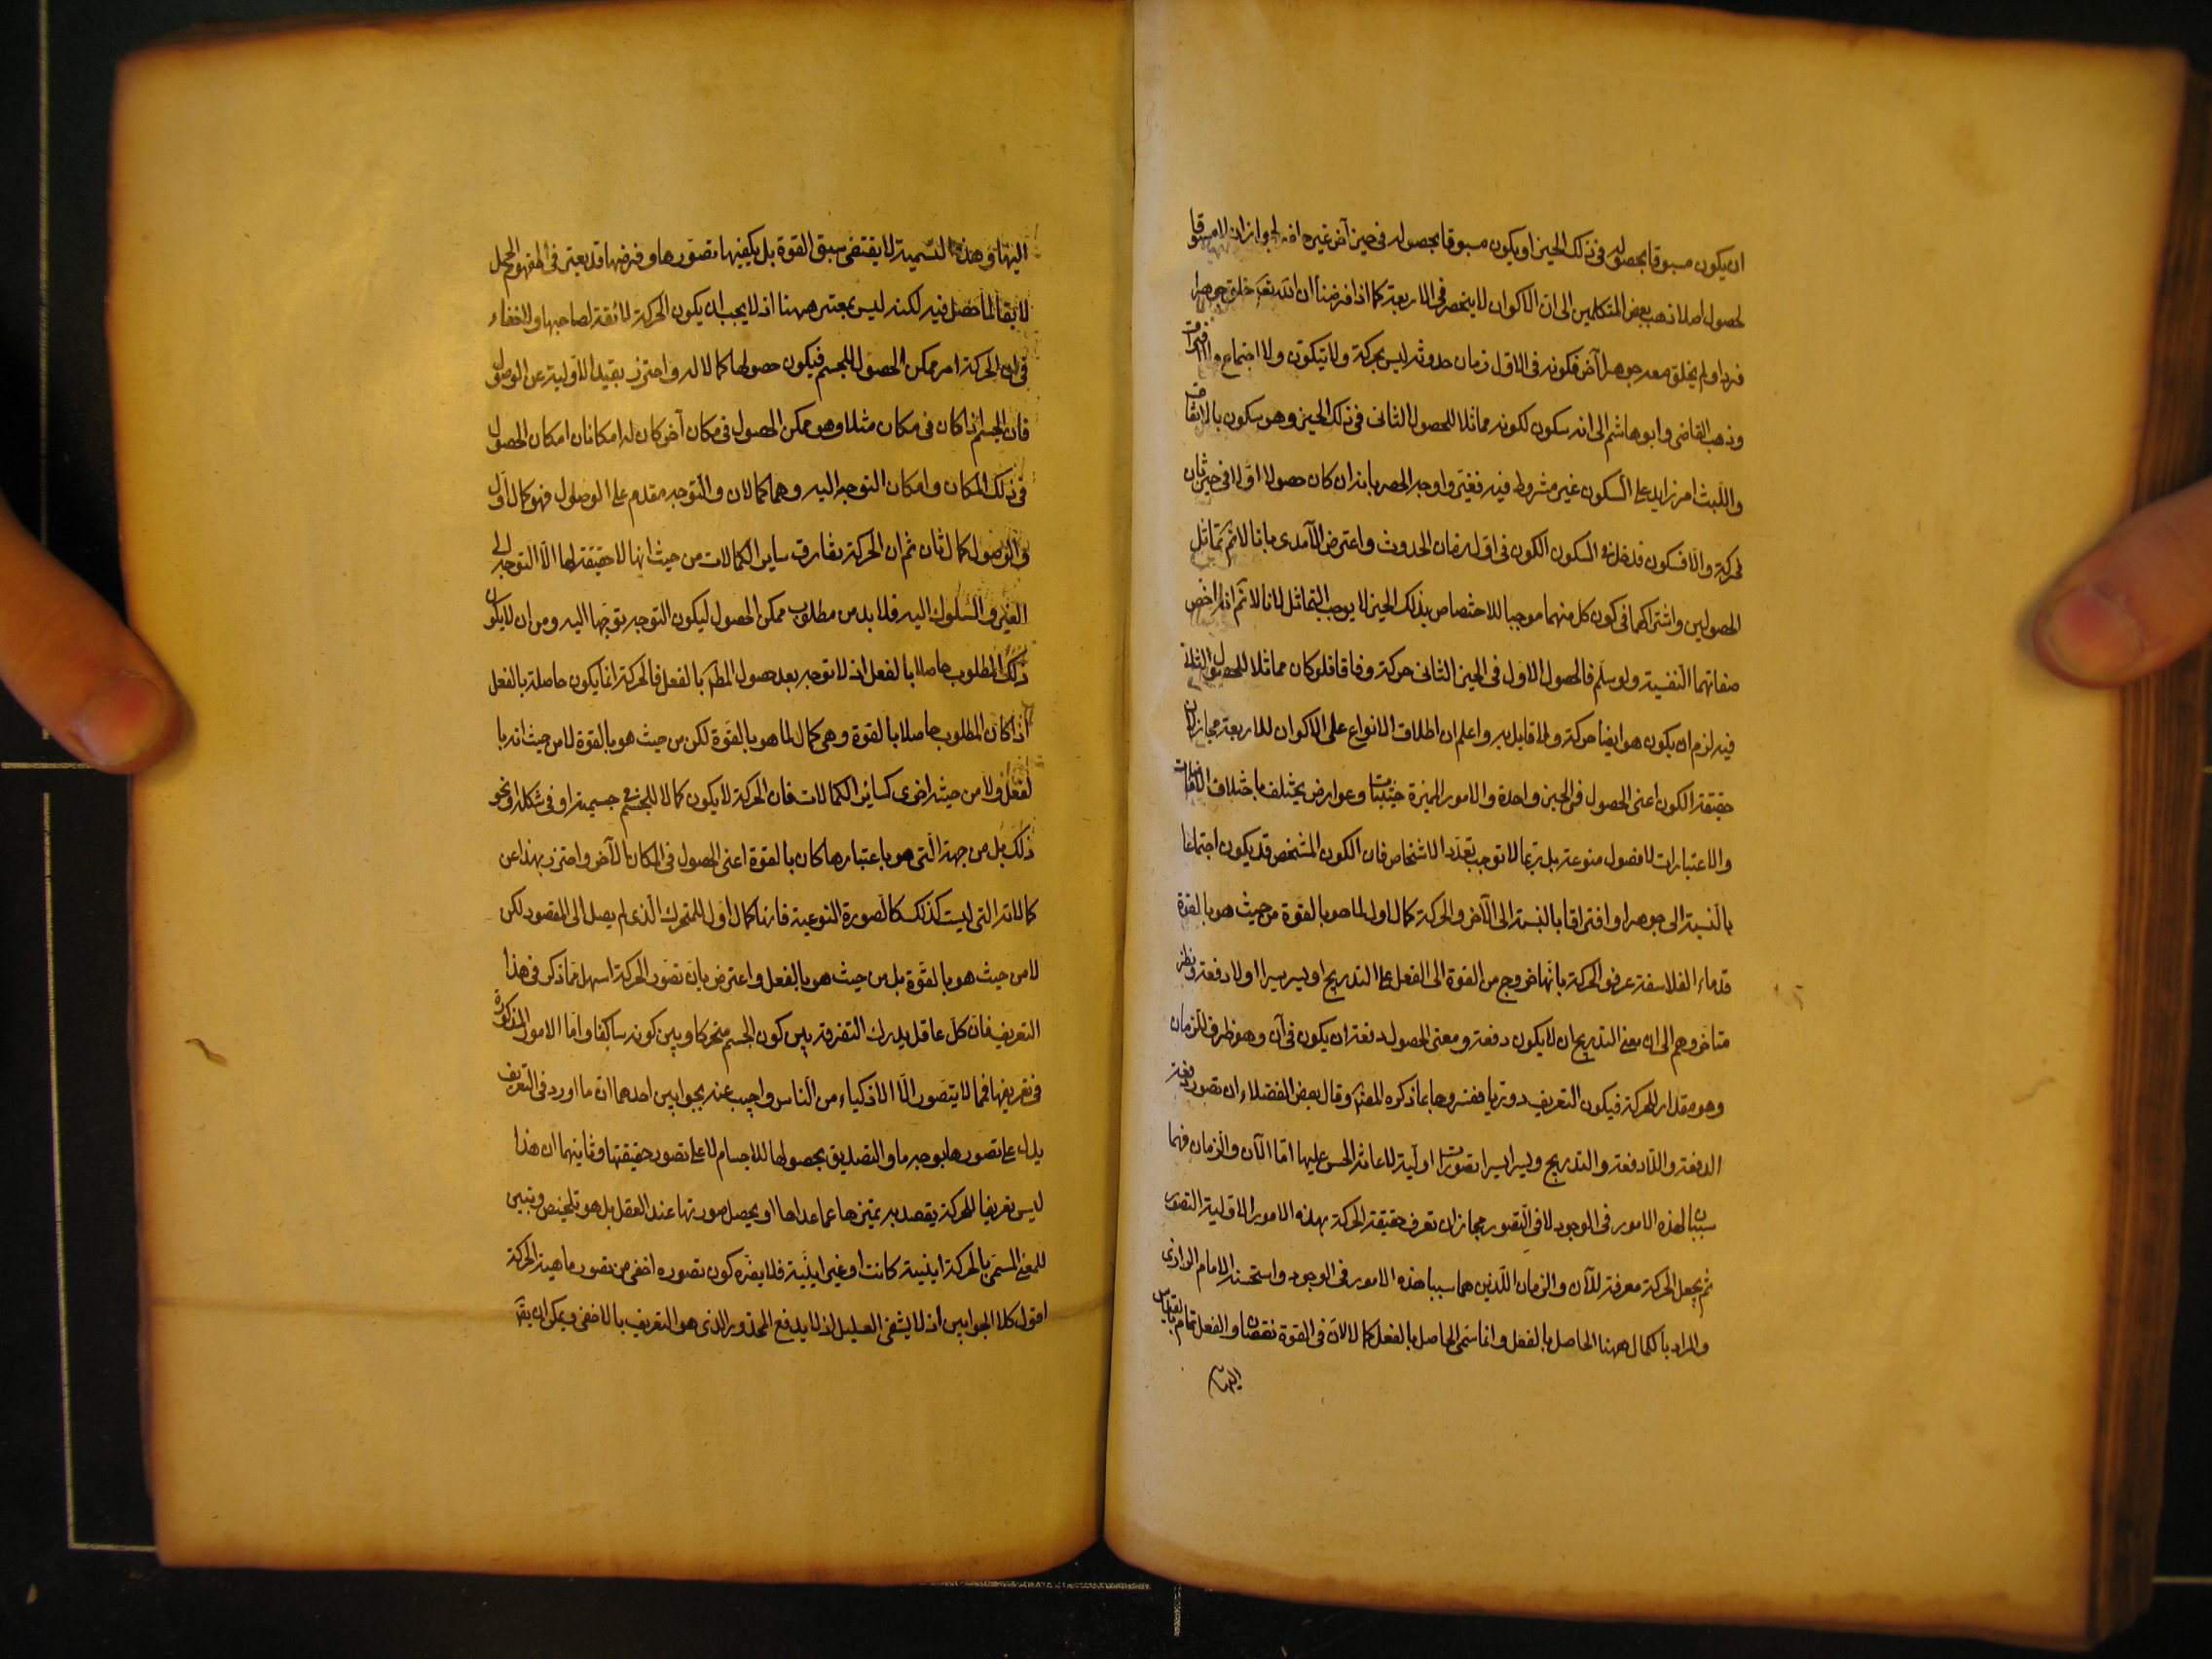 ان يكون مسبوقا بحصوله فى ذلك الحيز او يكون مسبوقا بحصوله فى حيز آخر غيره لجواز ان لا
لحصول اصلا ذهب بعض المتكلمين الى ان الاكوان لا ينحصر فى الاربعة كما اذا فرضنا ان الله تعه خلق جوهرا
فردا ولم يخلق معه جوهرا آخر فكونه فى الاول زمان حدوثه ليس بحركة ولا ولا اجتماع ولا افتراق
وذهب القاضى وابو هاشم الى انه سكون لكونه مماثلا للحصول الثانى فى ذلك الحيز وهو سكون بالاتفاق
واللبث امر زايد على السكون غير مشروط فيه اوجه الحصر بانه ان كان حصولا اولا فى حيز ثان
فحركة والا فسكون فدخل فى السكون الكون فى اول زمان الحدوث واعترض الآمدى بانا لا نم تماثل
الحصولين واشتراكهما فى كون كل منهما موجبا للاختصاص بذلك الحيز لا يوجب التماثل لانا لا نم انه اخص
صفاتهما النفسية ولو سلم فالحصول الاول فى الحيز الثانى حركة وفاقا فلو كان مماثلا للحصول الثانى
فيه لزم ان يكون هو ايضا حركة ولا قايل به واعلم ان اطلاق الانواع على الاكوان للاربعة مجاز لان
حقيقة الكون اعنى الحصول فى الحيز واحدة والامور المميزة حيثيات وعوارض يختلف باختلاف الاضافات
والاعتبارات لا فصول منوعة بل ربما لا توجب تعدد الاشخاص فان الكون المشخص قد يكون اجتماعا
بالنسبة الى جوهر او افتراقا بالنسبة الى الآخر والحركة كمال اول لما هو بالقوة من حيث هو بالقوة
قدماء الفلاسفة عرفوا الحركة بانها خروج من القوة الى الفعل على التدريج او يسيرا يسيرا او لا دفعة ونظر
متاخروهم الى ان معنى التدريج ان لا يكون دفعة ومعنى الحصول دفعة ان يكون فى آن وهو ظرف الزمان
وهو مقدار للحركة فيكون التعريف دوريا ففسروها بما ذكره المصنف وقال بعض الفضلاء ان تصور دفعة
الدفعة واللادفعة والتدريج ويسيرا يسيرا تصورات اولية لاعانة الحس عليها اما الآن والزمان فهما
سببان لهذه الامور فى الوجود لا فى التصور فجاز ان تعرف حقيقة الحركة بهذه الامور الاولية التصور
ثم يجعل الحركة معرفة للآن والزمان اللذين هما سببا هذه الامور فى الوجود واستحسنه الامام الرازى
والمراد بالكمال ههنا الحاصل بالفعل وانما سمى الحاصل بالفعل كمالا لان فى القوة نقصانا والفعل تمام بالقياس
اليها
اليها وهذه التسمية لا يقتضى سبق القوة بل يكفيها تصورها وفرضها قد يعتبر فى المفهوم
لائقا لما حصل فيه لكنه ليس بمعتبر ههنا اذ لا يجب ان يكون الحركة لائقة لصاحبها ولا خفاء
فى ان الحركة امر ممكن الحصول للجسم فيكون حصولها كمالا له واحترز بقيد الاولية عن الوصول
فان الجسم اذا كان فى مكان مثلا وهو ممكن الحصول فى مكان آخر كان له امكانان امكان الحصول
فى ذلك المكان وامكان التوجه اليه وهما كمالان والتوجه مقدم على الوصول فهو كمال اول
والوصول كمال ثان ثم ان الحركة يفارق ساير الكمالات من حيث انها لا حقيقة لها الا التوجه الى
الغير والسلوك اليه فلا بد من مطلوب ممكن الحصول ليكون التوجه توجها اليه ومن ان لا يكون
ذلك المطلوب حاصلا بالفعل اذ لا توجه بعد حصول المطم بالفعل فالحركة انما يكون حاصلة بالفعل
اذا كان المطلوب حاصلا بالقوة وهى كمال لما هو بالقوة لكن من حيث هو بالقوة لا من حيث انه با
لفعل ولا من حيث اخرى كساير الكمالات فان الحركة لا يكون كمالا للجسم فى جسميته او فى شكله او نحو
ذلك بل من جهة التى هو باعتبارها كان بالقوة اعنى الحصول فى المكان الآخر واحترز بهذا عن
كمالاته التى ليست كذلك كالصورة النوعية فانها كمال اول للمتحرك الذى لم يصل الى المقصود لكن
لا من حيث هو بالقوة بل من حيث هو بالفعل واعترض بان تصور الحركة اسهل مما ذكر فى هذا
التعريف فان كل عاقل يدرك التفرقة بين كون الجسم متحركا وبين كونه ساكنا واما الامور المذكورة
فى تعريفها فمما لا يتصور الا الاذكياء من الناس واجيب عنه بجوابين احدهما ان ما اورد فى التعريف
يدل على تصورها بوجه ما والتصديق بحصولها للاجسام لا على تصور حقيقتها وثانيهما ان هذا
ليس تعريفا للحركة يقصد به تميزها عما عداها او يحصل صورتها عند العقل بل هو تلخيص وتبيين
للمعنى المسمى بالحركة اينية كانت او غير اينية فلا يضره كون تصوره اخفى من تصور ماهية الحركة
اقول كلا الجوابين لا يشفى العليل اذ لا يدفع المحذور الذى هو التعريف بالاخفى ويمكن ان يقم